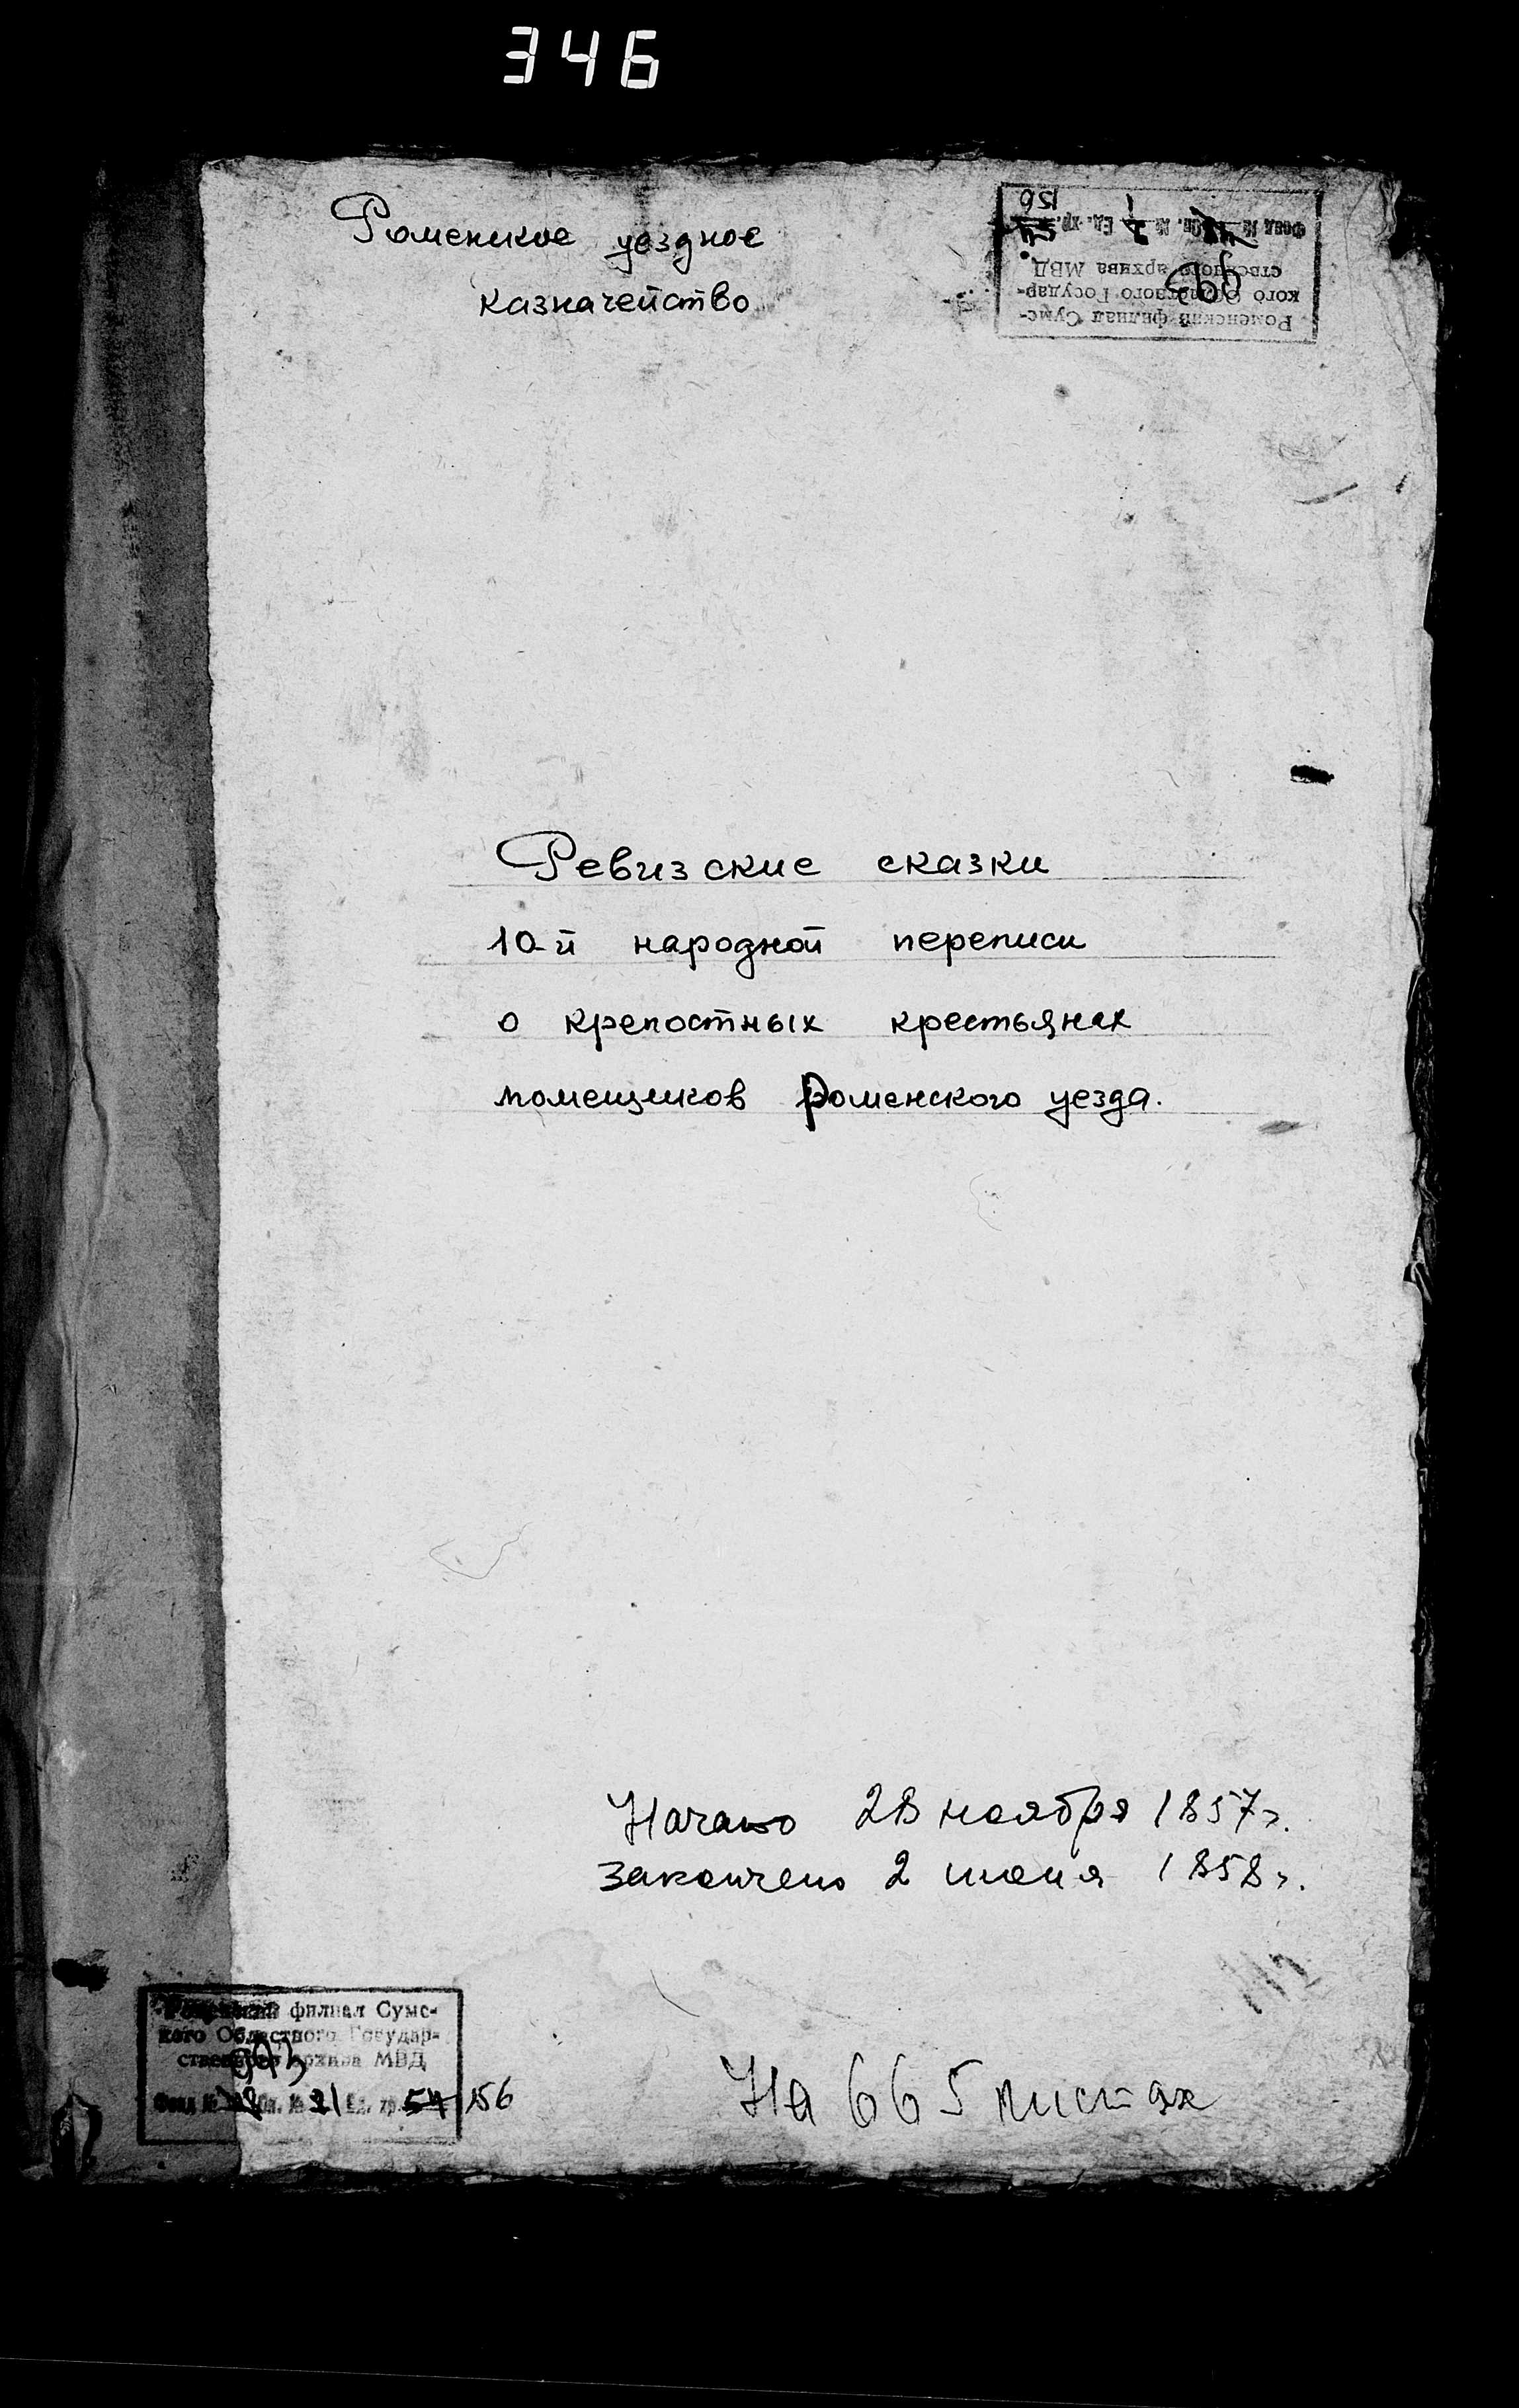 346
Роменское уездное
казначейство
Роменский филиал Сумс-
кого Областного Государ-
ственного архива МВД
Фонд № Оп. № Ед. хр.
Ревизские сказки
10-й народной переписи
о крепостных крестьянах
помещиков Роменского уезда.
Начато 28 ноября 1857 г.
Закончено 2 июня 1858 г.
филиал Сумс-
кого Областного Государ-
ственного архива МВД
Фонд № Оп. № Ед. хр. 54 156
На 665 листах